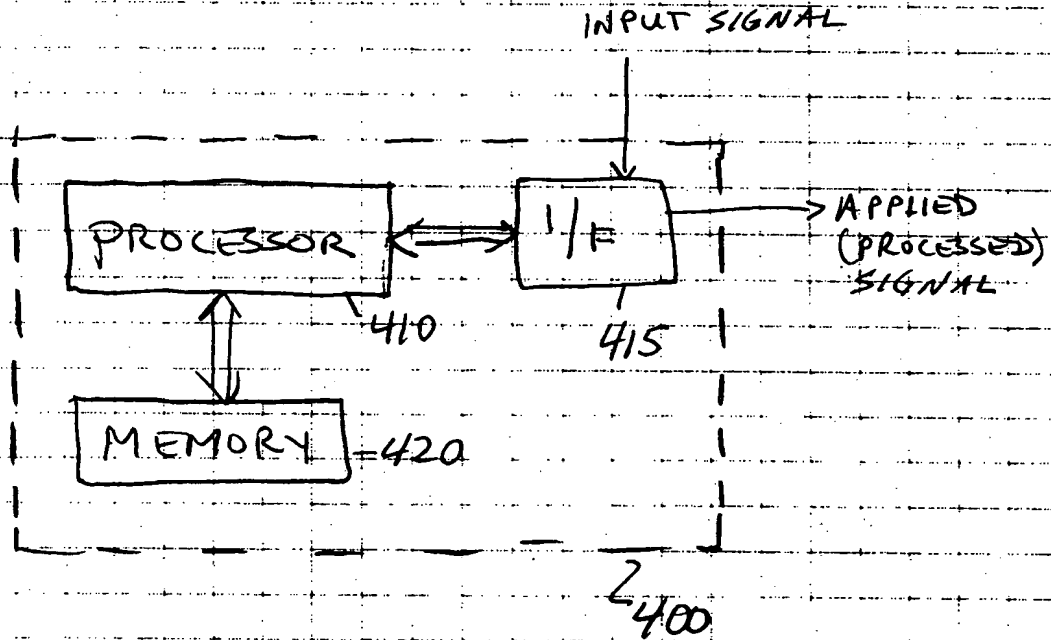 INPUT SIGNAL
PROCESSOR
I/F
APPLIED
(PROCESSED)
SIGNAL
410
415
MEMORY
420
400